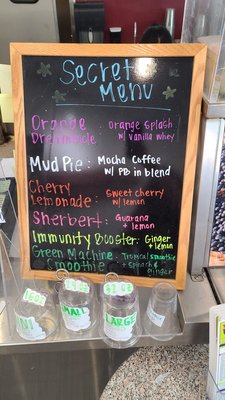 Secret
Menu
Orange Dreamsicle : Orange Splash
w/ vanilla whey
Mud Pie : Mocha Coffee
w/ PB in blend
Cherry Lemonade : Sweet cherry
w/ lemon
Sherbert : Guarana
+ lemon
Immunity Booster : Ginger
+ lemon
Green Machine Smoothie : Tropical smoothie
+ spinach
ginger
SMALL
LARGE